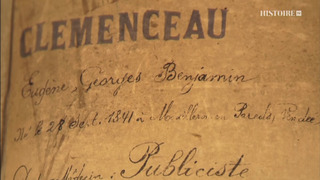 HISTOIRE TV
CLEMENCEAU
Eugène Georges Benjamin
Né le 28 Sept. 1841 à en Pareds, Vendée
Publiciste